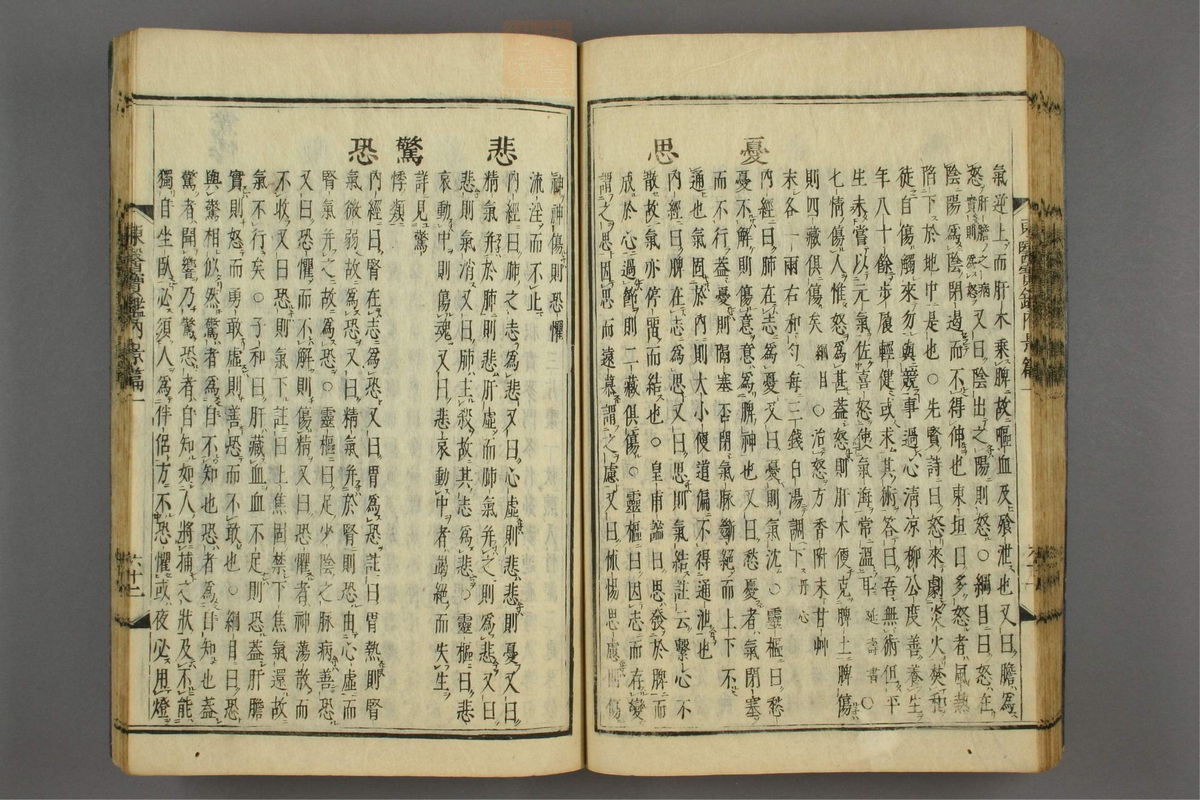 氣逆上而肝木乘脾故嘔血及飱泄也又曰膽爲
怒肝膽之病實則爲怒又曰陰出之陽則怒○綱目曰怒在
陰陽爲陰閉遏而不得伸也東垣曰多怒者風熱
陷下於地中是也○先賢詩曰怒來劇炎火焚和
徒自傷觸來勿與競事過心清凉柳公度善養生
年八十餘步履輕健或求其術答曰吾無術但平
生未嘗以元氣佐喜怒使氣海常溫耳延壽書○
七情傷人惟怒爲甚蓋怒則肝木便克脾土脾傷
則四藏俱傷矣綱目○治怒方香附末甘艸
末各一兩右和勻每三錢白湯調下丹心
憂
內經曰肺在志爲憂又曰憂則氣沈○靈樞曰愁
憂不解則傷意意爲脾神也又曰愁憂者氣閉塞
而不行蓋憂則隔塞否閉氣脉斷絕而上下不
通也氣固於內則大小便道偏不得通泄也
思
內經曰脾在志爲思又曰思則氣結註云繫心不
散故氣亦停留而結也○皇甫謐曰思發於脾而
成於心過節則二藏俱傷○靈樞曰因志而存變
謂之思因思而遠慕謂之慮又曰怵惕思慮則傷
神神傷則恐懼
流淫而不止
悲
內經曰肺之志爲悲又曰心虛則悲悲則憂又曰
精氣并於肺則悲肝虛而肺氣并之則爲悲又曰
悲則氣消又曰肺主殺故其志爲悲○靈樞曰悲
哀動中則傷魂又曰悲哀動中者竭絕而失生
驚
詳見驚
悸類
恐
內經曰腎在志爲恐又曰胃爲恐註曰胃熱則腎
氣微弱故爲恐又曰精氣并於腎則恐由心虛而
腎氣并之故爲恐○靈樞曰足少陰之脉病善恐
又曰恐懼而不解則傷精又曰恐懼者神蕩散而
不收又曰恐則氣下註曰上焦固禁下焦氣還故
氣不行矣○子和曰肝藏血血不足則恐蓋肝膽
實則怒而勇敢虛則善恐而不敢也○綱目曰恐
與驚相似然驚者爲自不知也恐者爲自知也蓋
驚者聞響乃驚恐者自知如人將捕之狀及不能
獨自坐臥必須人爲伴侶方不恐懼或夜必用燈
東醫寶鑑內景篇一